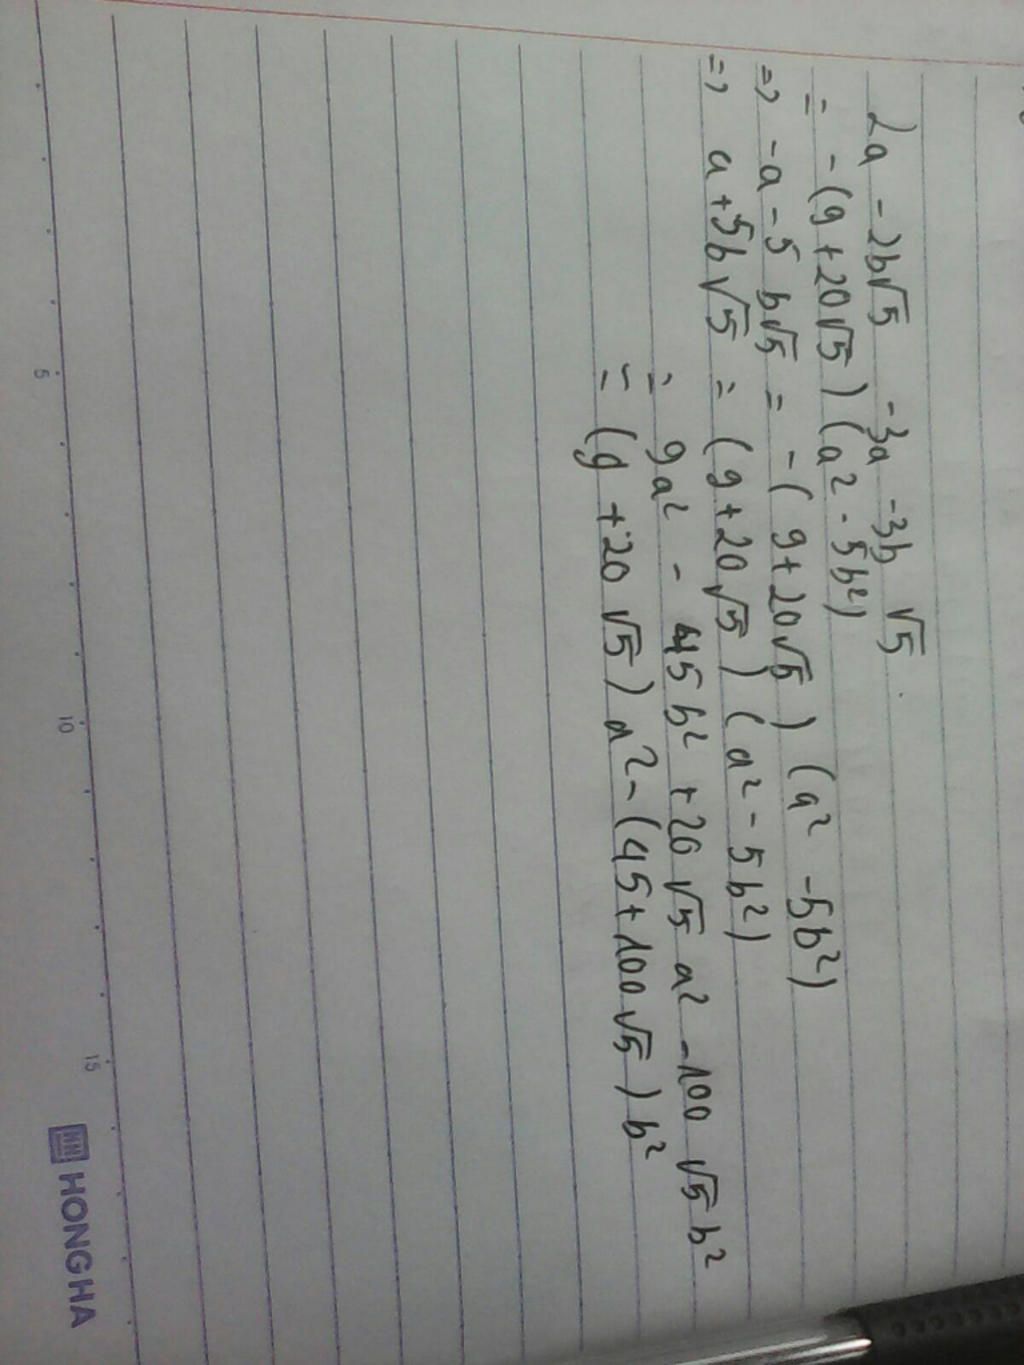 2a - 2b√5 - 3a - 3b √5
= - (9 + 20√5) (a² - 5b²)
=> -a - 5 b√5 = - ( 9 + 20√5 ) (a² - 5b²)
=> a + 5b√5 = (9 + 20√5) (a² - 5b²)
= 9a² - 45b² + 20√5 a² - 100 √5 b²
= (9 + 20√5) a² - (45 + 100√5) b²
5 10 15
HONG HA